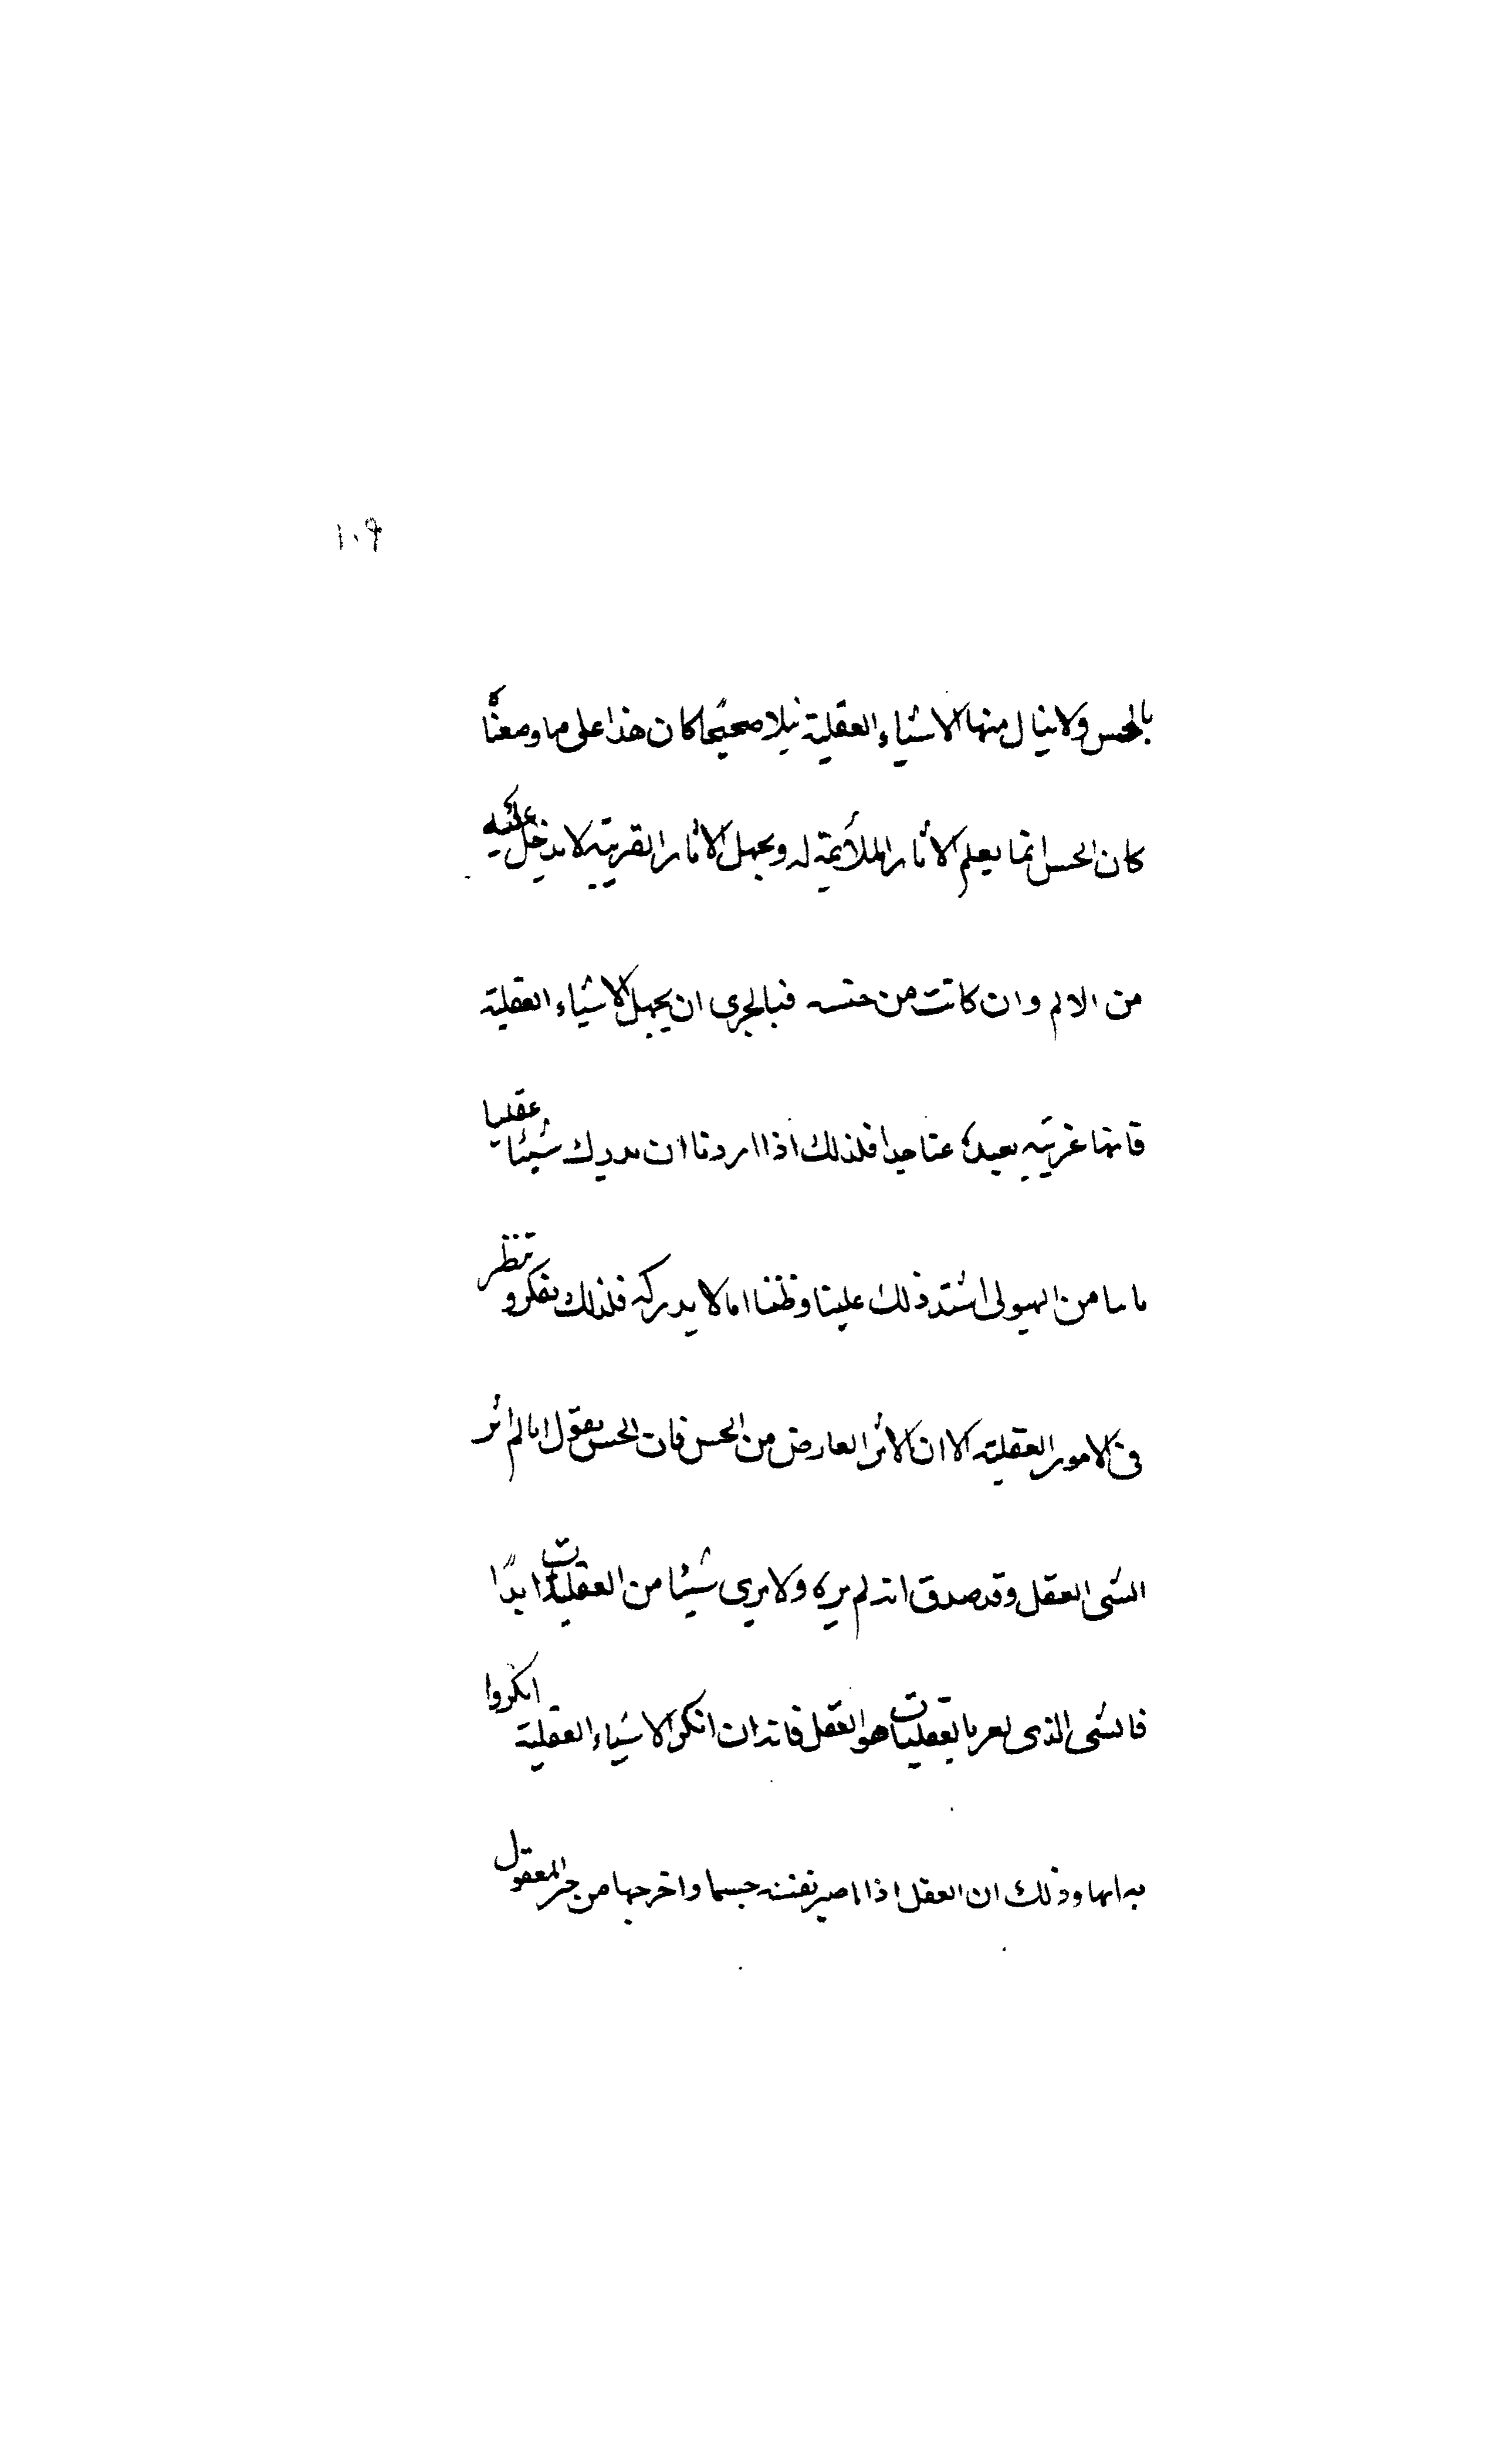 ١٠٩
بالحس ولا ينال منها الاشياء العقلية نيلا صحيحًا كان هذا على ما وصفنا
كان الحس انما يعلم الاثار الملائمة له ويجهل الاثار القريبة لا يدخل عليه
من الالم وان كانت من جنسه فبالحرى ان يجهل الاشياء العقلية
فانها غريبه بعيدة عنا جدا فلذلك اذا اردنا ان ندرك شيئا عقليا
من الهيولى اشتد ذلك علينا وظننا انا لا ندركه فلذلك نفكر وننظر
فى الامور العقليه لا ان الاثر العارض من الحس فان الحس يقول انا لم اثر
الشى العقل وقد صدق انه لم يره ولا يرى شيئا من العقليات ابدًا
فالشى الذى يعر بالعقليات هو العقل فانه ان انكر الاشياء العقلية انكروا
وذلك ان العقل اذا ما صير نفسه جسما واخرجها من حيز المعقول